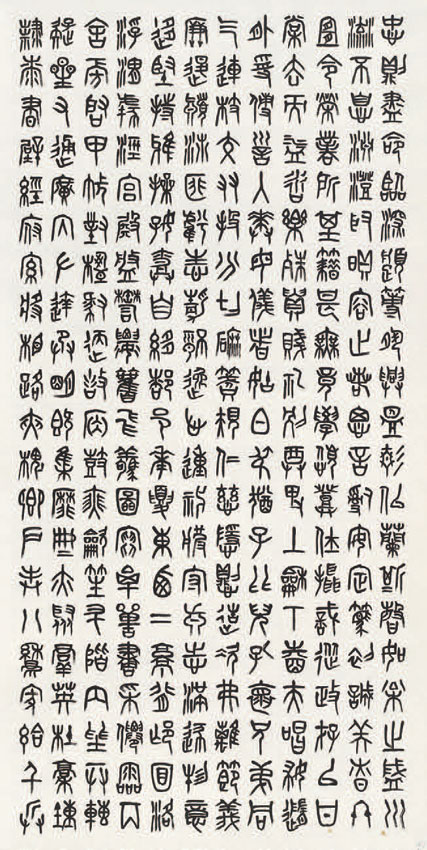 忠則盡命臨深履薄夙興溫凊似蘭斯馨如松之盛川
流不息淵澄取映容止若思言辭安定篤初誠美慎終
宜令榮業所基籍甚無竟學優登仕攝職從政存以甘
棠去而益詠樂殊貴賤禮別尊卑上和下睦夫唱婦隨
外受傅訓入奉母儀諸姑伯叔猶子比兒孔懷兄弟同
氣連枝交友投分切磨箴規仁慈隱惻造次弗離節義
廉退顛沛匪虧性靜情逸心動神疲守真志滿逐物意
移堅持雅操好爵自縻都邑華夏東西二京背邙面洛
浮渭據涇宮殿盤鬱樓觀飛驚圖寫禽獸畫彩仙靈丙
舍旁啟甲帳對楹肆筵設席鼓瑟吹笙升階納陛弁轉
疑星右通廣內左達承明既集墳典亦聚群英杜稿鍾
隸漆書壁經府羅將相路俠槐卿戶封八縣家給千兵